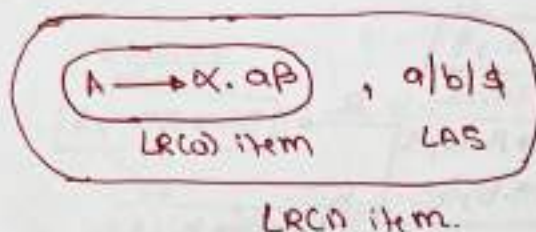 A → α.aβ , a|b|$
LR(0) item LAS
LR(1) item.